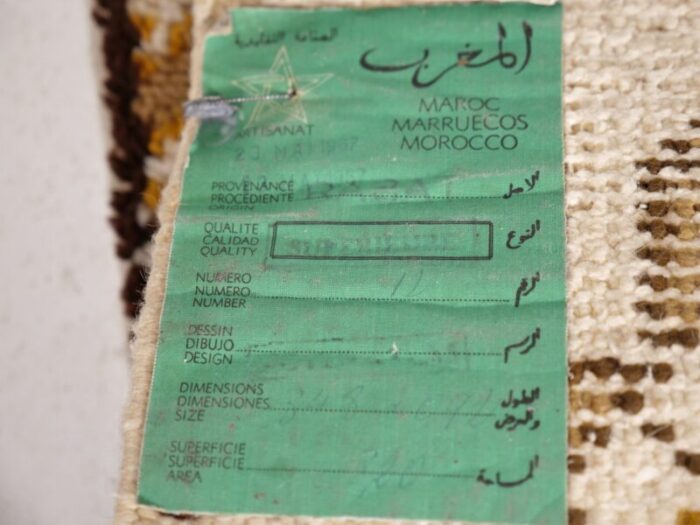 الصناعة التقليدية
المغرب
ARTISANAT
MAROC
MARRUECOS
MOROCCO
PROVENANCE
PROCEDIENTE
ORIGIN
الاصل
QUALITE
CALIDAD
QUALITY
النوع
NUMERO
NUMERO
NUMBER
الرقم
DESSIN
DIBUJO
DESIGN
الرسم
DIMENSIONS
DIMENSIONES
SIZE
الطول
والعرض
SUPERFICIE
SUPERFICIE
AREA
المساحة